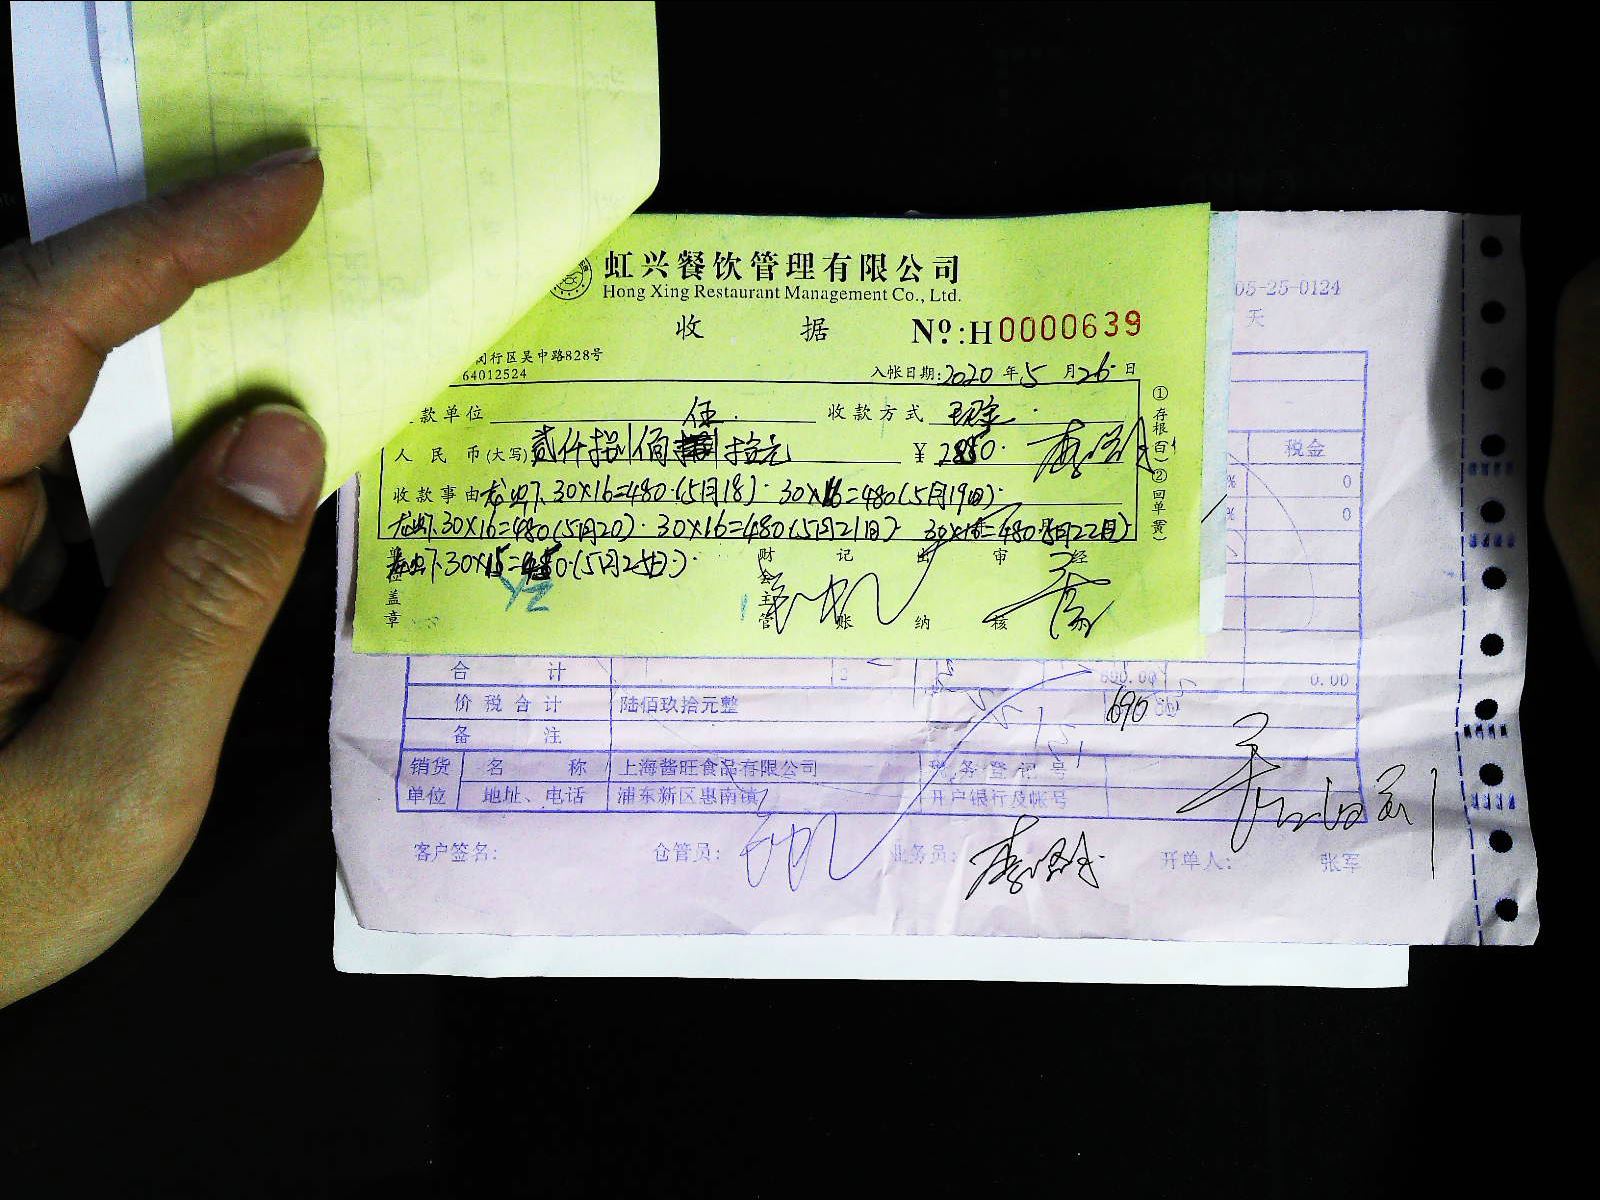 虹兴餐饮管理有限公司
Hong Xing Restaurant Management Co., Ltd.
收 据 Nº:H0000639
闵行区吴中路828号
64012524
入帐日期:2020年5月26日
款单位 伍. 收款方式 现金.
人民币(大写) 贰仟捌佰 拾元 ¥2850.
收款事由 30×16=480.(5月18). 30×16=480(5月19日).
30×16=480(5月20). 30×16=480(5月21日) 30×16=480.5月22日)
30×15=450.(5月25日).
盖章
财会主管 记账 出纳 审核 经
YZ
①存根(白)
②回单(黄)
05-25-0124
天
税金
% 0
% 0
合 计 690.00 0.00
价税合计 陆佰玖拾元整 690
备 注
销货单位 名 称 上海酱旺食品有限公司 税务登记号
地址、电话 浦东新区惠南镇 开户银行及帐号
客户签名: 仓管员: 业务员: 开单人: 张军